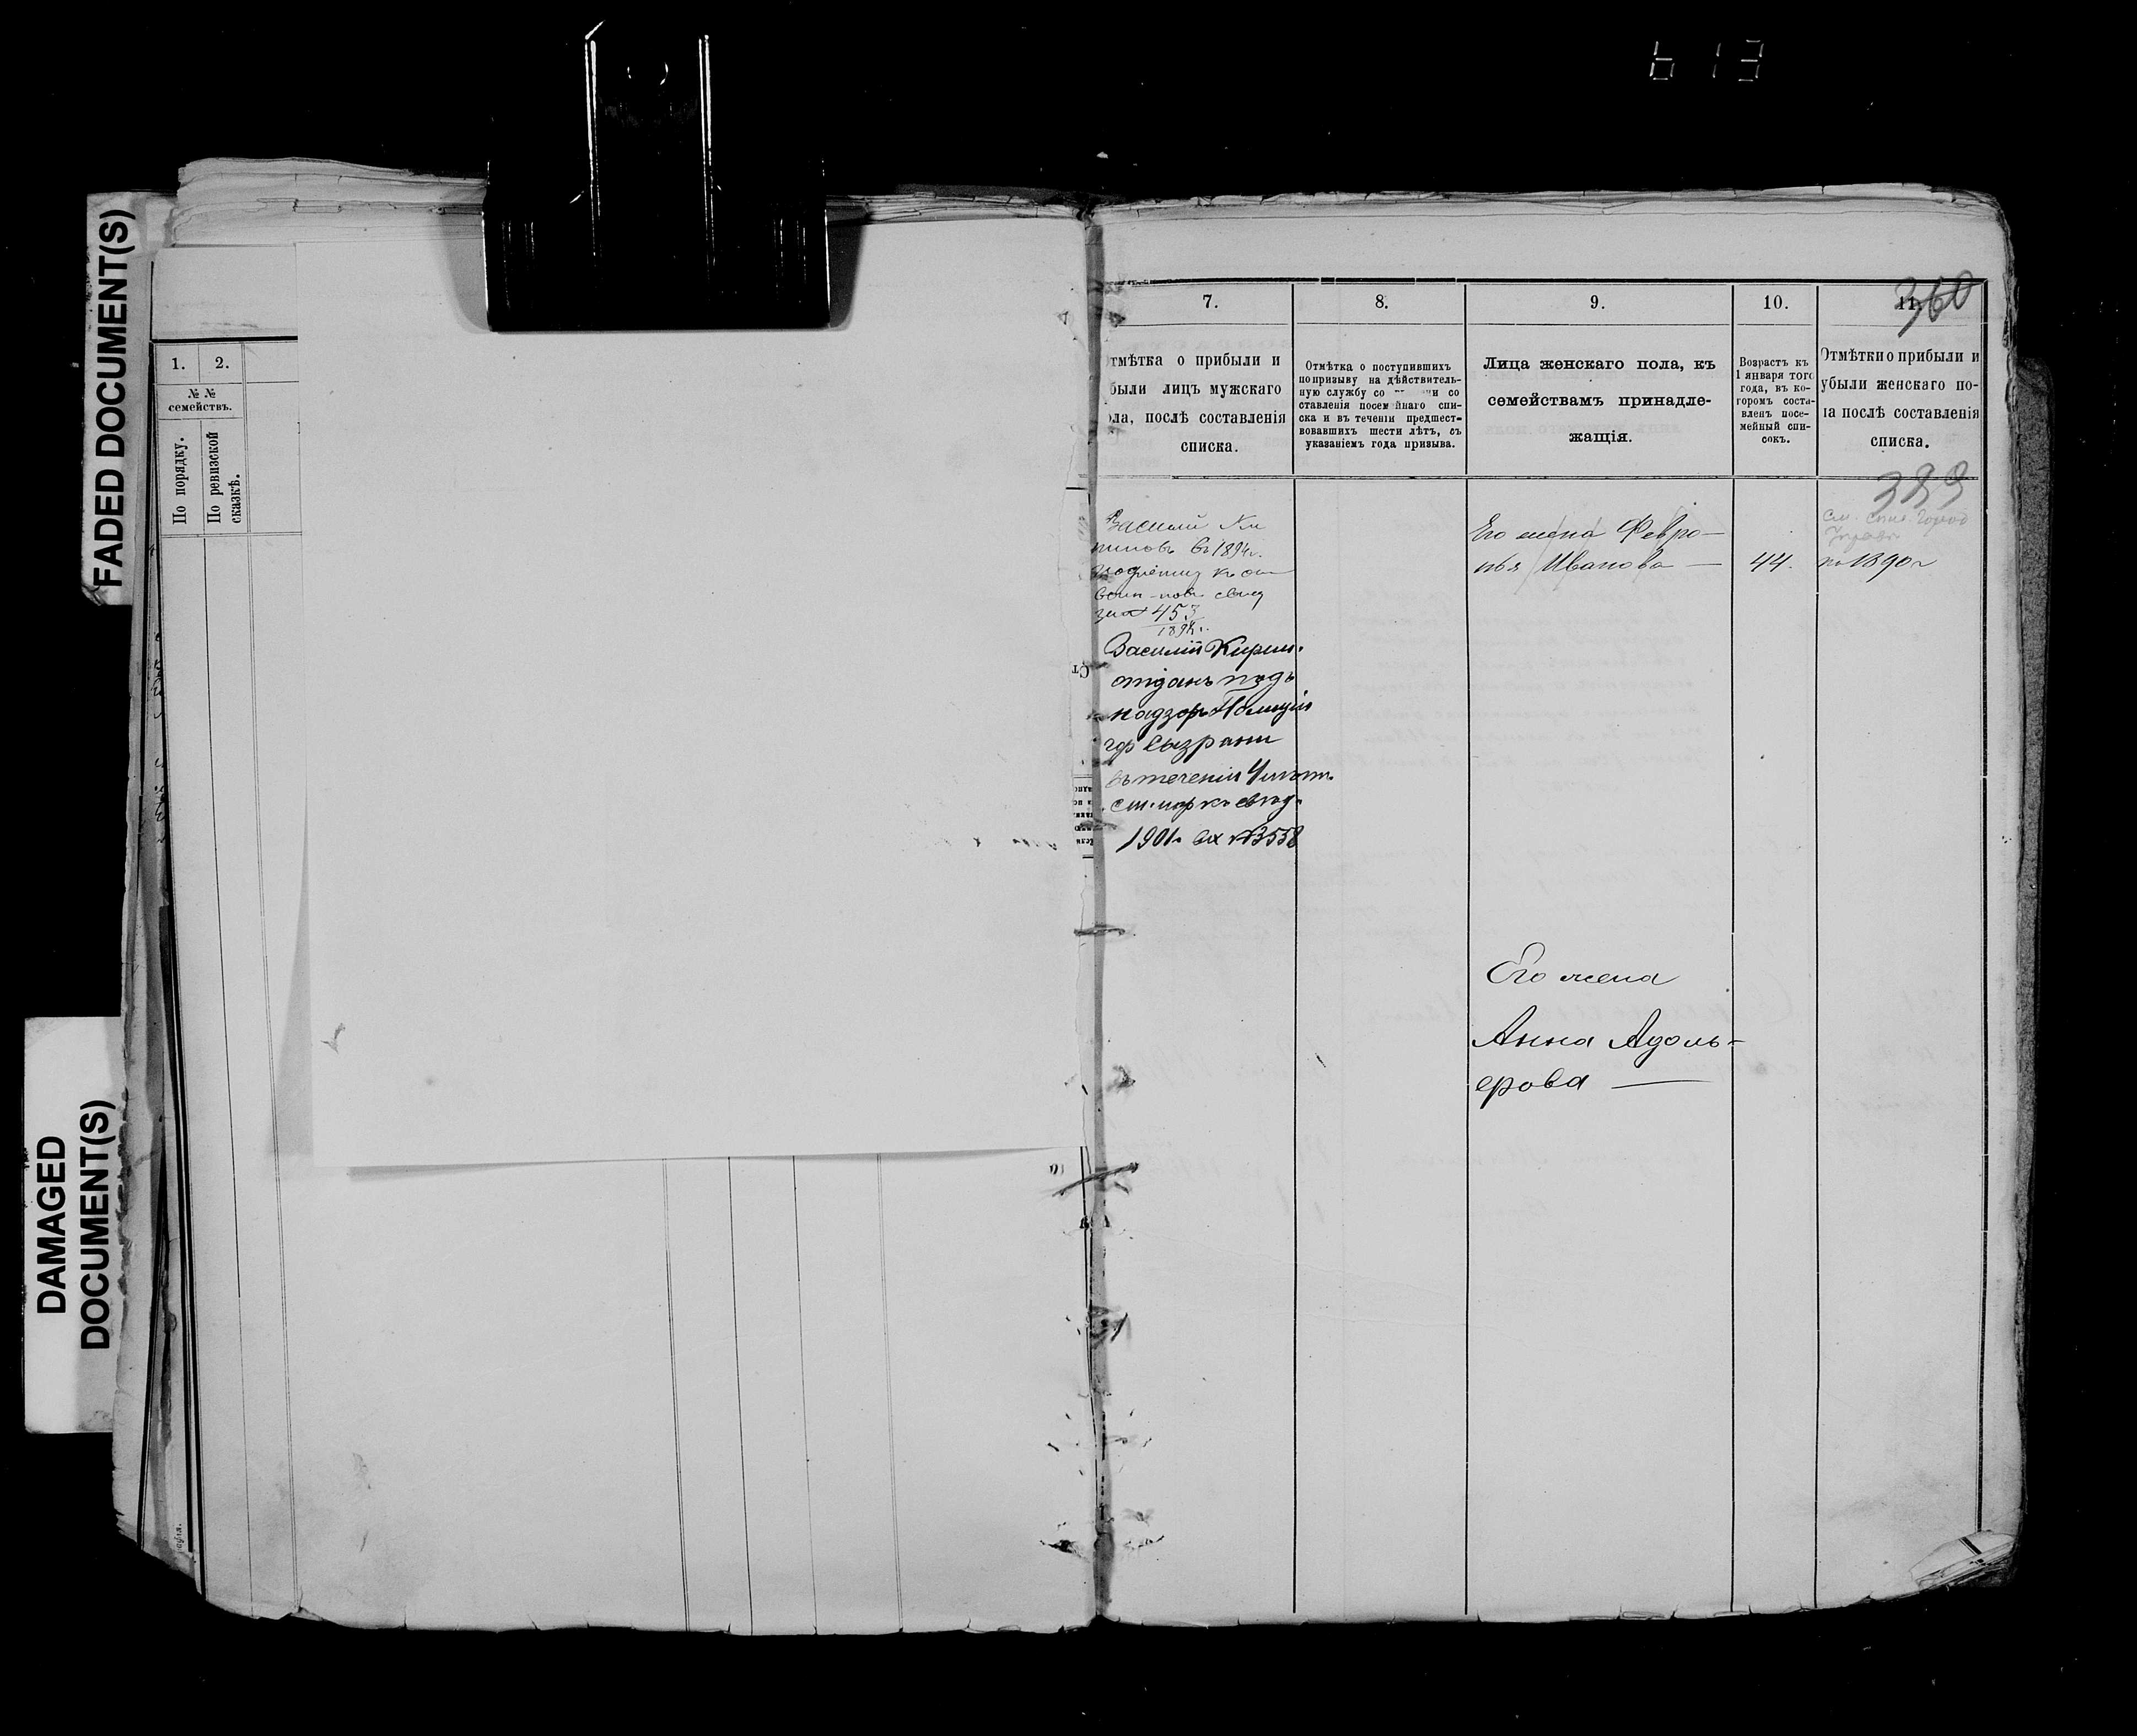 613
FADED DOCUMENT(S)
DAMAGED
DOCUMENT(S)
1. 2.
№ №
семействъ.
По порядку.
По ревизской
сказкѣ.
360
7.
тмѣтка о прибыли и
были лицъ мужскаго
ла, послѣ составленія
списка.
8.
Отмѣтка о поступившихъ
по призыву на дѣйствитель-
ную службу со и со
ставленія посемейнаго спи-
ска и въ теченіи предшест-
вовавшихъ шести лѣтъ, съ
указаніемъ года призыва.
9.
Лица женскаго пола, къ
семействамъ принадле-
жащія.
10.
Возрастъ къ
1 января того
года, въ ко-
торомъ соста-
вленъ посе-
мейный спи-
сокъ.
11.
Отмѣтки о прибыли и
убыли женскаго по-
ла послѣ составленія
списка.
389
Василій
въ 1894г.
453
Василій Кирил.
отданъ подъ
надзоръ Полиціи
гор Сызрани
въ теченіи 4
1901г вх №3558
Его жена Февро-
нья Иванова — 44.
1890г
Его жена
Анна Адоль-
фова —